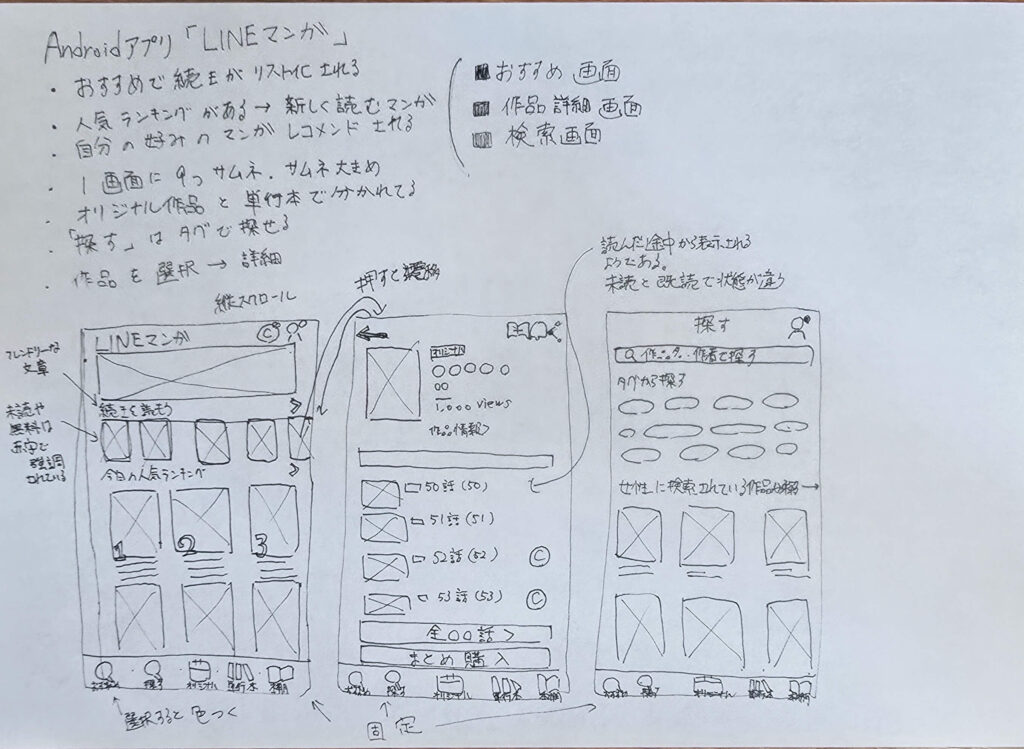 Androidアプリ「LINEマンガ」
・おすすめで続きがリスト化される
・人気ランキングがある→新しく読むマンガ
・自分の好みのマンガレコメンドされる
・1画面に9つサムネ.サムネ大きめ
・オリジナル作品と単行本で分かれてる
・「探す」はタブで探せる
・作品を選択→詳細
■おすすめ画面
■作品詳細画面
■検索画面
縦スクロール
フレンドリーな
文章
未読や
無料は
赤字で
強調
されている
LINEマンガ
C
続きを読もう
今日の人気ランキング
1
2
3
おすすめ
探す
オリジナル
単行本
本棚
選択すると色つく
押すと遷移
オリジナル
〇〇〇〇〇
〇〇
1,000 views
作品情報>
50話(50)
51話(51)
52話(52)
C
53話(53)
C
全〇〇話>
まとめ購入
おすすめ
探す
オリジナル
単行本
本棚
固定
読んだ途中から表示される
ようである。
未読と既読で状態が違う
探す
作品・作者で探す
タグから探す
女性に検索されている作品 →
おすすめ
探す
オリジナル
単行本
本棚